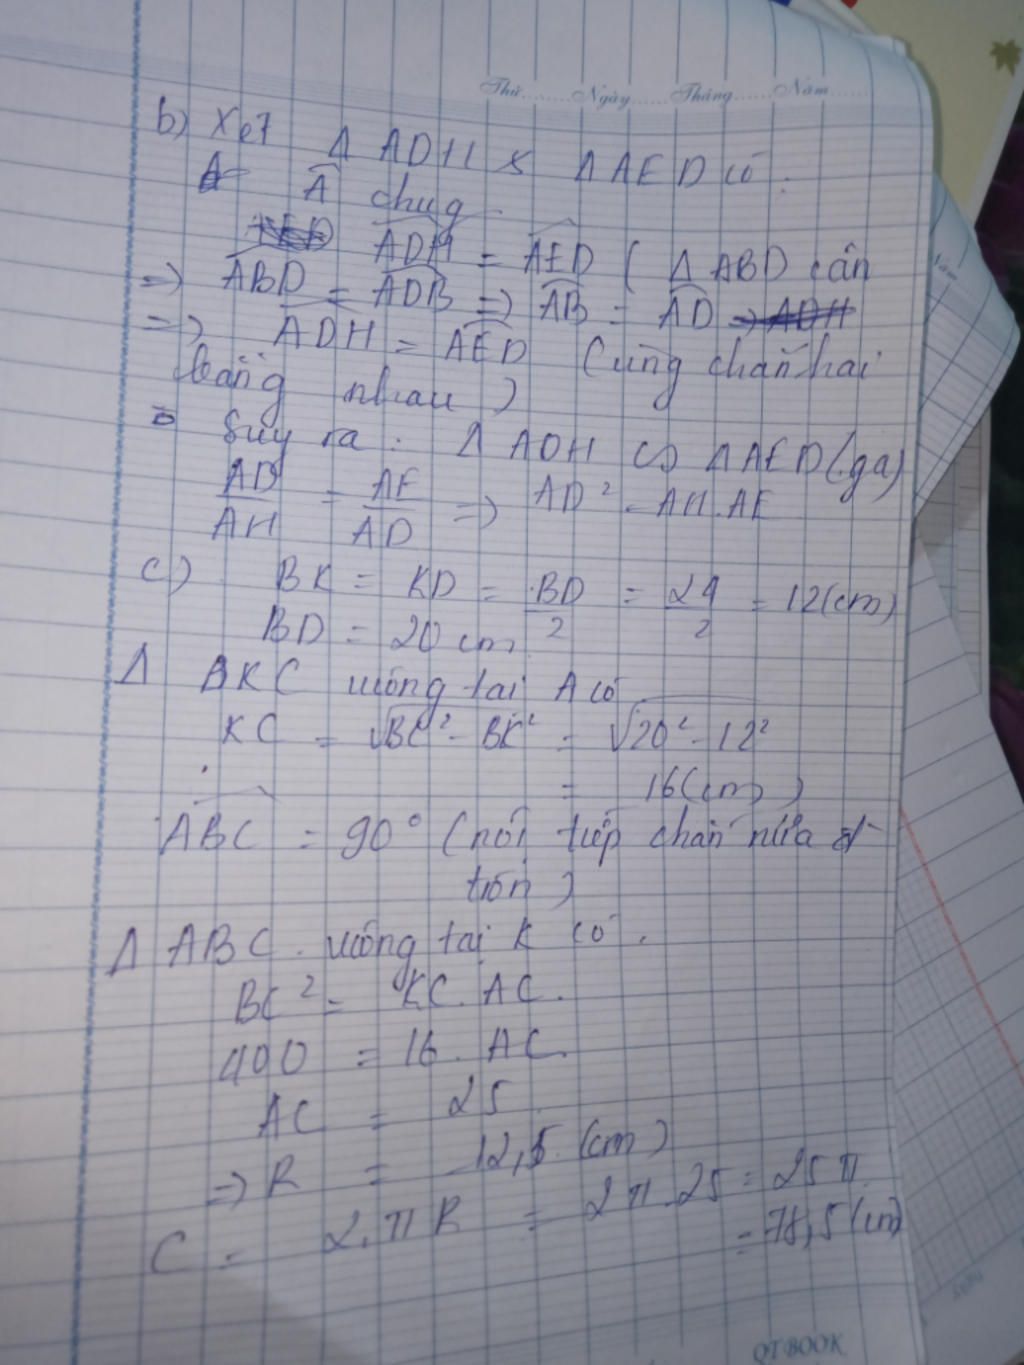 Thứ......Ngày......Tháng......Năm......
b) Xét Δ ADH & Δ AED có :
Â chug
ADH = AED ( Δ ABD cân
=> ABD = ADB => AB = AD => ADH
=> ADH = AED (cùng chắn hai
bằng nhau )
Suy ra : Δ ADH ∽ Δ AED (gg)
AD/AH = AE/AD => AD² = AH.AE
c) BK = KD = BD/2 = 24/2 = 12(cm)
BD = 20 cm
Δ BKC vuông tại A có
KC = √BC² - BK² = √20² - 12²
= 16(cm)
ABC = 90° (nội tiếp chắn nửa đ
tròn )
Δ ABC . vuông tại K có .
BC² = KC. AC.
400 = 16 . AC.
AC = 25
=> R = 12,5 (cm)
C = 2.π R = 2π.25 = 25π.
= 78,5 (cm)
QT BOOK